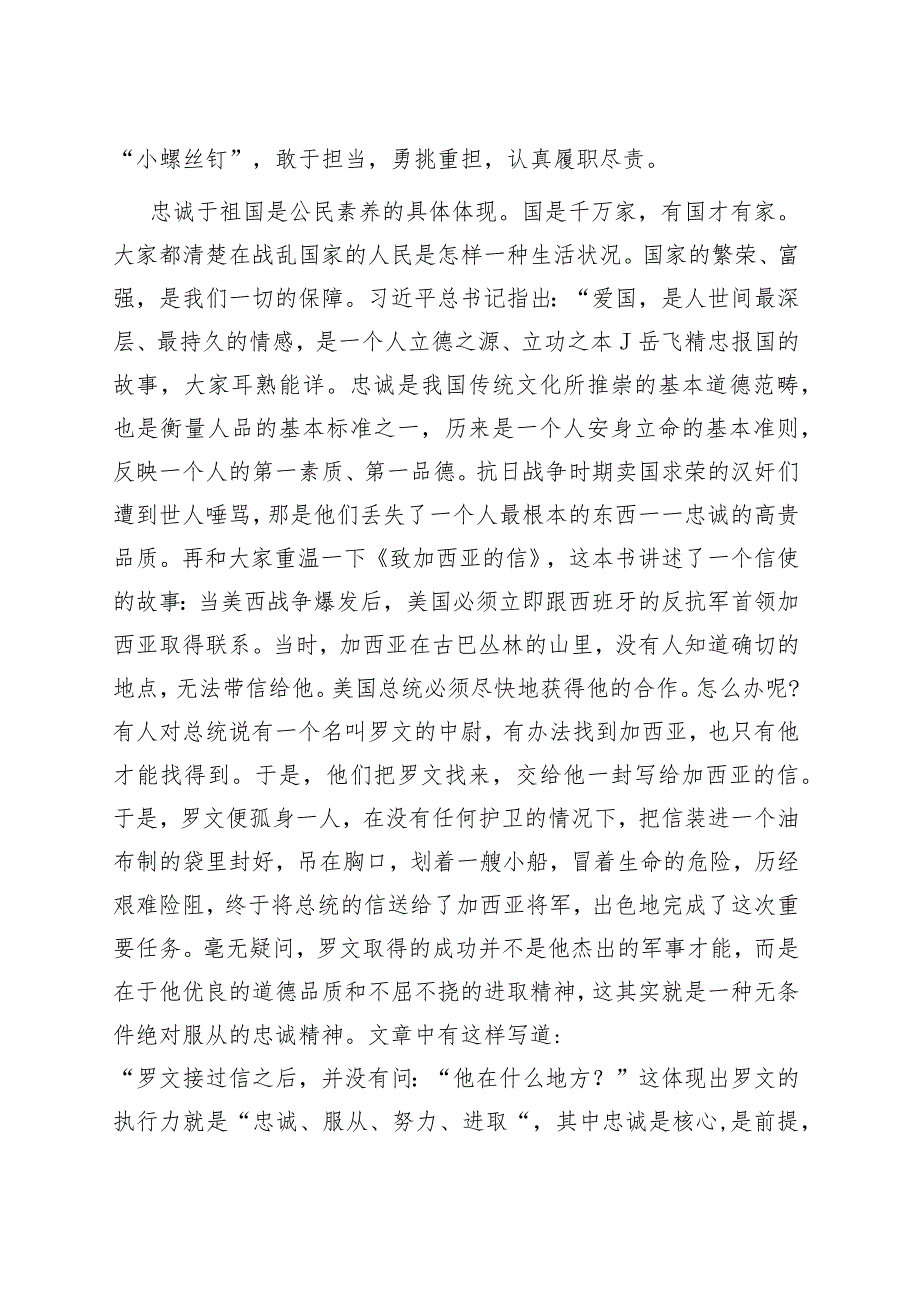 “小螺丝钉”，敢于担当，勇挑重担，认真履职尽责。
忠诚于祖国是公民素养的具体体现。国是千万家，有国才有家。
大家都清楚在战乱国家的人民是怎样一种生活状况。国家的繁荣、富
强，是我们一切的保障。习近平总书记指出：“爱国，是人世间最深
层、最持久的情感，是一个人立德之源、立功之本J岳飞精忠报国的
故事，大家耳熟能详。忠诚是我国传统文化所推崇的基本道德范畴，
也是衡量人品的基本标准之一，历来是一个人安身立命的基本准则，
反映一个人的第一素质、第一品德。抗日战争时期卖国求荣的汉奸们
遭到世人唾骂，那是他们丢失了一个人最根本的东西一一忠诚的高贵
品质。再和大家重温一下《致加西亚的信》，这本书讲述了一个信使
的故事：当美西战争爆发后，美国必须立即跟西班牙的反抗军首领加
西亚取得联系。当时，加西亚在古巴丛林的山里，没有人知道确切的
地点，无法带信给他。美国总统必须尽快地获得他的合作。怎么办呢？
有人对总统说有一个名叫罗文的中尉，有办法找到加西亚，也只有他
才能找得到。于是，他们把罗文找来，交给他一封写给加西亚的信。
于是，罗文便孤身一人，在没有任何护卫的情况下，把信装进一个油
布制的袋里封好，吊在胸口，划着一艘小船，冒着生命的危险，历经
艰难险阻，终于将总统的信送给了加西亚将军，出色地完成了这次重
要任务。毫无疑问，罗文取得的成功并不是他杰出的军事才能，而是
在于他优良的道德品质和不屈不挠的进取精神，这其实就是一种无条
件绝对服从的忠诚精神。文章中有这样写道：
“罗文接过信之后，并没有问：“他在什么地方？”这体现出罗文的
执行力就是“忠诚、服从、努力、进取“，其中忠诚是核心,是前提，